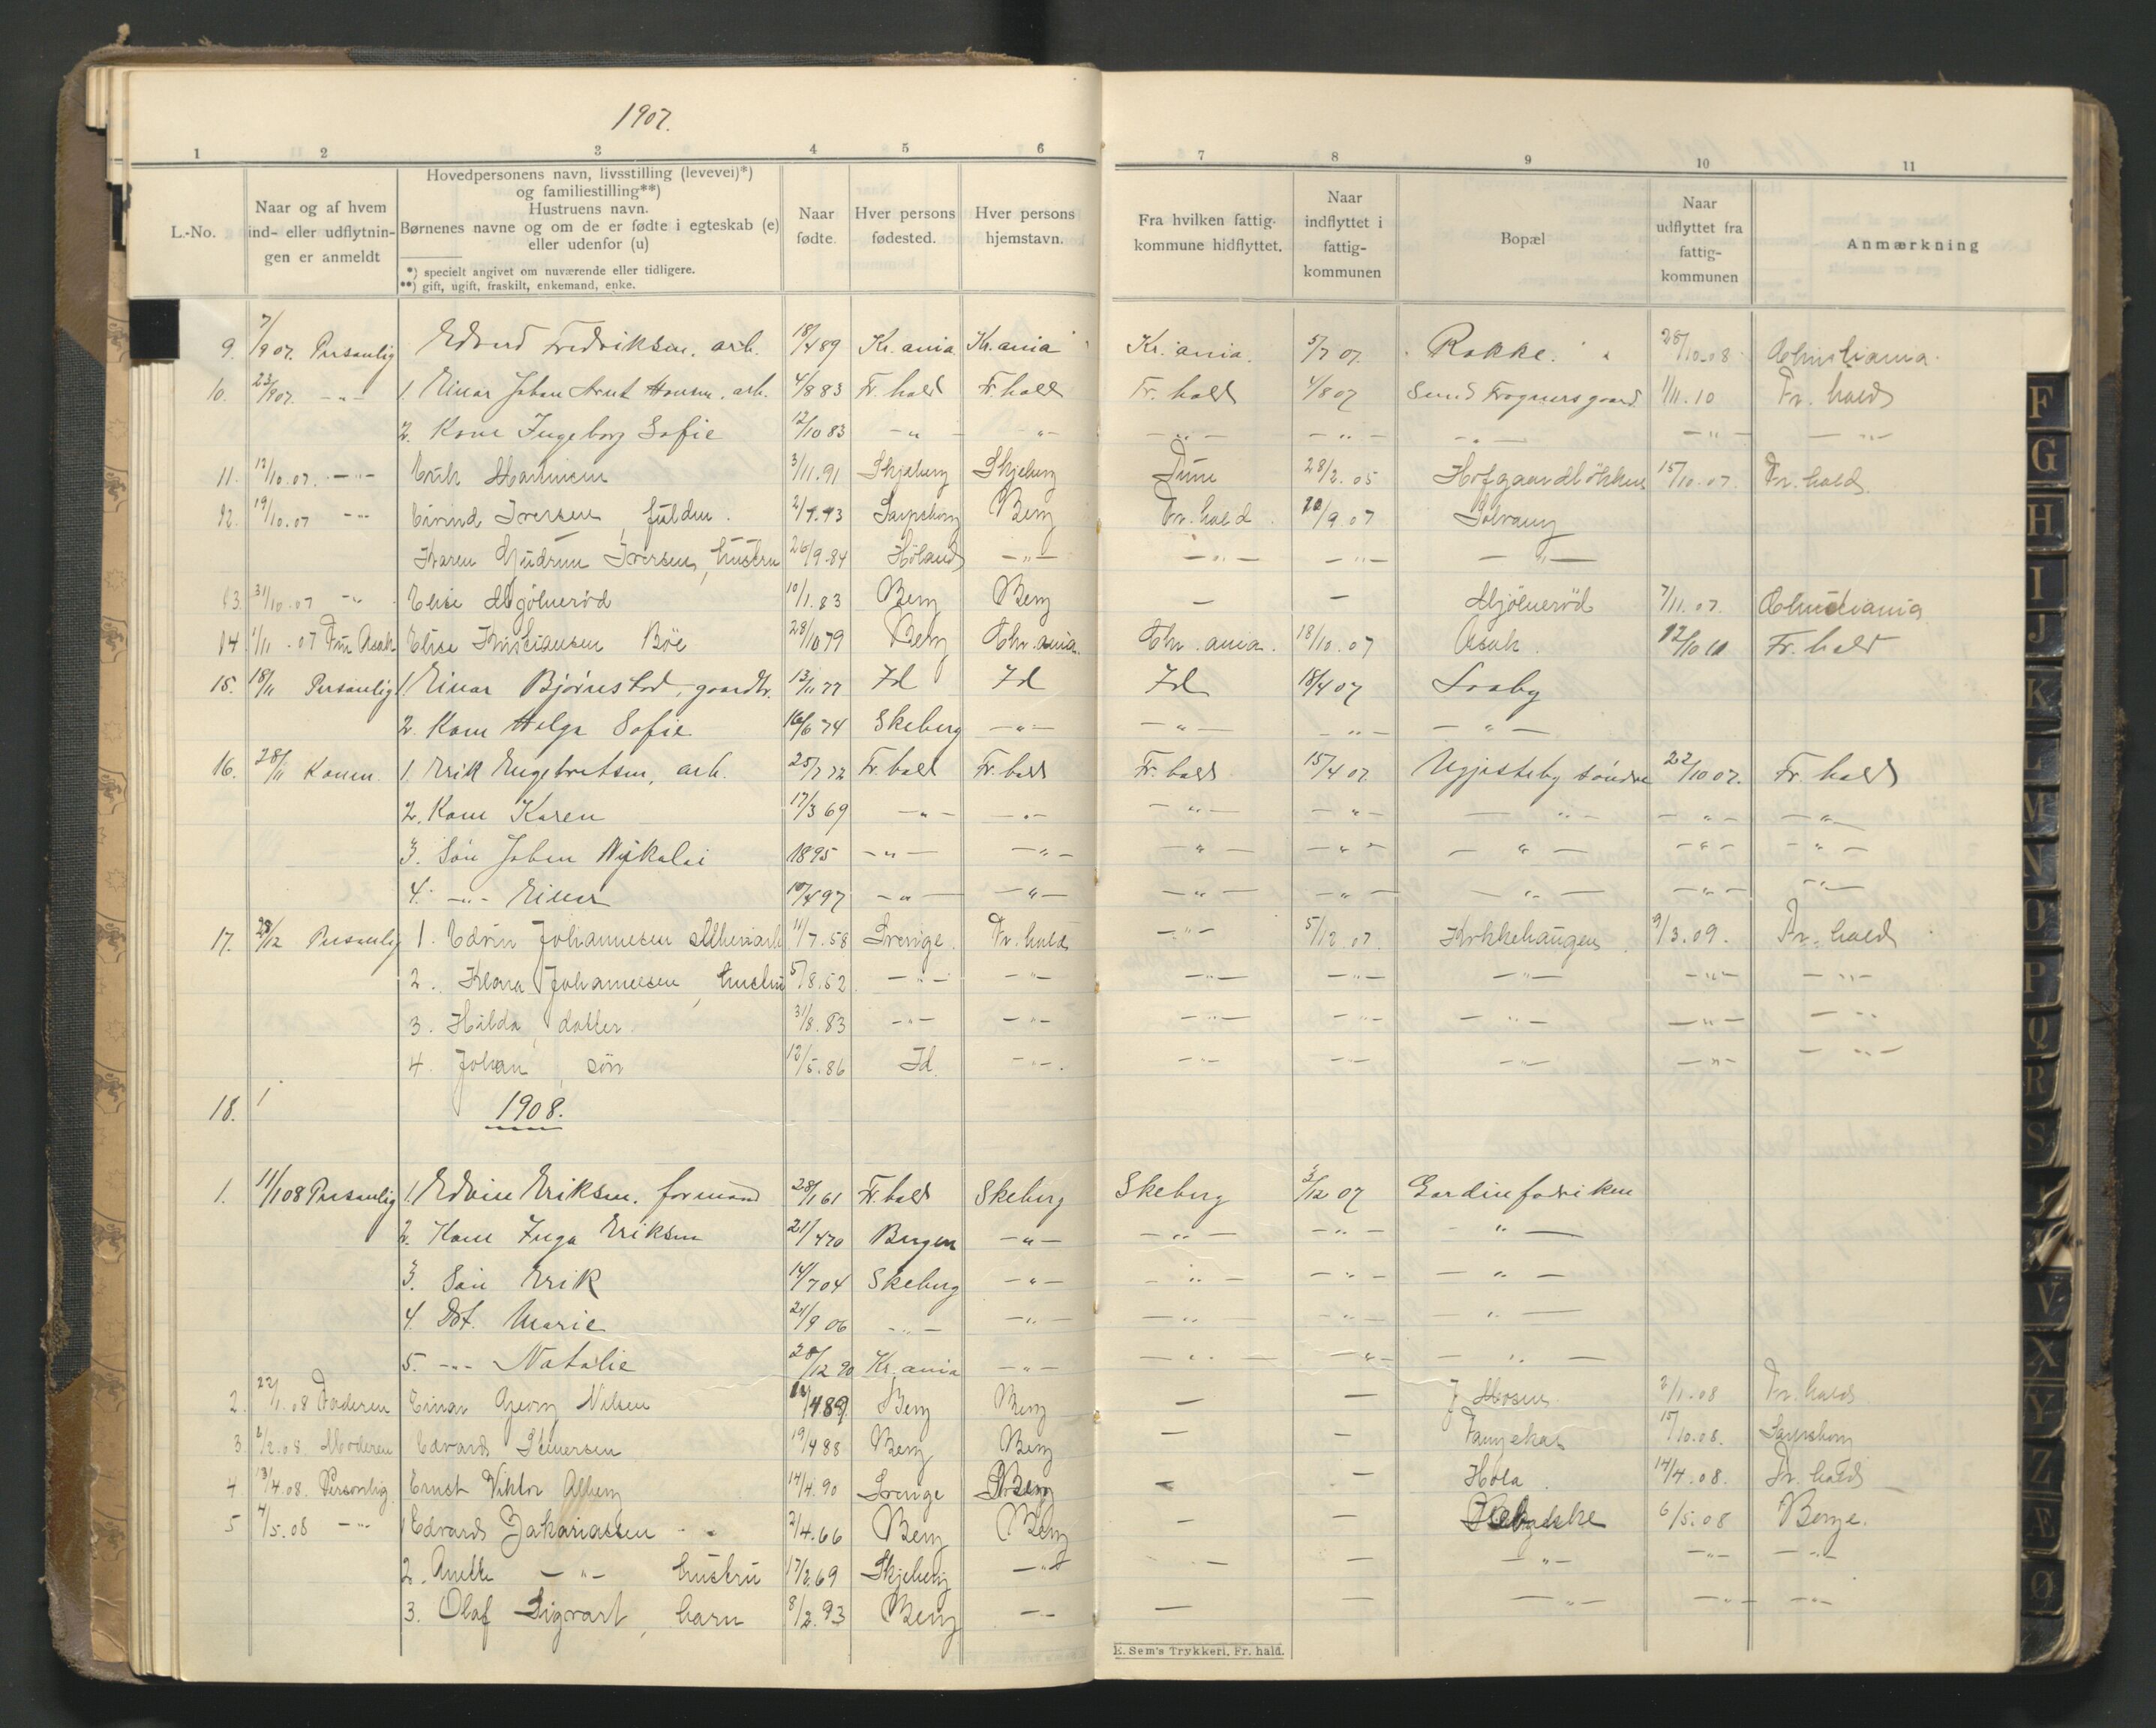 1907.
1 2 3 4 5 6 7 8 9 10 11
L.-No.
Naar og af hvem
ind- eller udflytnin-
gen er anmeldt
Hovedpersonens navn, livsstilling (levevei)*)
og familiestilling**)
Hustruens navn.
Børnenes navne og om de er fødte i egteskab (e)
eller udenfor (u)
*) specielt angivet om nuværende eller tidligere.
**) gift, ugift, fraskilt, enkemand, enke.
Naar
fødte.
Hver persons
fødested.
Hver persons
hjemstavn.
Fra hvilken fattig-
kommune hidflyttet.
Naar
indflyttet i
fattig-
kommunen
Bopæl
Naar
udflyttet fra
fattig-
kommunen
Anmærkning
9. 7/9 07. Personlig Edvard Fredriksen. arb. 18/4 89 Kr.ania Kr.ania Kr.ania. 5/7 07. Rokke. 28/10.08 Christiania.
10. 23/9 07. -"- 1. Einar Johan Arnt Hansen. arb. 4/8 83 Fr.hald Fr.hald Fr.hald 4/8 07 Sund Fragnersgaard 1/11.10 Fr.hald
2. Kone Ingeborg Sofie 12/10 83 -"- -"- -"- -"- -"- -"- -"-
11. 12/10.07. -"- Erik Martinsen 3/11.91 Skjeberg Skjeberg Tune 28/2.05 Hofgaardløkken 15/10.07. Fr.hald.
12. 19/10.07 -"- Eivind Iversen, fuldm. 2/4.43 Sarpsborg Berg Fr.hald 20/9.07 Solvang
Karen Gudrun Iversen, hustru 26/9.84 Høland -"- -"- -"- -"-
13. 31/10.07 -"- Elise Mjølnerød 10/1.83 Berg Berg - - Mjølnerød 7/11.07. Christiania
14. 1/11.07 Fru Asak Elise Kristiansen Bøe 28/10 79 Berg Chr.ania. Chr.ania. 18/10.07 Asak. 12/10 10 Fr.hald
15. 18/11 Personlig 1. Einar Bjørnstad, gaardbr. 13/11 77 Id Id Id 18/4 07 Louby
2. Kone Helga Sofie 16/6 74 Skeberg -"- -"- -"- -"-
16. 28/11 Konen. 1. Erik Engebretsen, arb. 25/7 72 Fr.hald Fr.hald Fr.hald 15/4 07. Ugjesteby søndre 22/10 07. Fr.hald
2. Kone Karen 17/3 69 -"- -"- -"- -"- -"- -"- -"-
3. Søn Johan Nykolai 1895 -"- -"- -"- -"- -"- -"- -"-
4. -"- Einar 10/4 97 -"- -"- -"- -"- -"- -"- -"-
17. 28/12 Personlig 1. Edvin Johannesen 11/7.58 Sverige. Fr.hald -"- 5/12.07. Krkkehaugen. 9/3.09. Fr.hald
2. Klara Johannesen, hustru 5/8.52. -"- -"- -"- -"- -"- -"- -"-
3. Hilda, datter. 31/8.83 -"- -"- -"- -"- -"- -"- -"-
4. Johan, søn 13/5.86 Id. -"- -"- -"- -"- -"- -"-
18. 1
1908.
1. 11/1 08 Personlig 1. Edvin Eriksen. formand 28/1 61 Fr.hald Skeberg Skeberg 3/12 07 Gardinfabriken
2. Kone Inga Eriksen 21/4 70 Bergen -"- -"- -"- -"-
3. Søn Erik 14/7 04 Skeberg -"- -"- -"- -"-
4. Dat. Marie 24/9 06 -"- -"- -"- -"- -"-
5. -"- Natalie 28/12 90 Kr.ania -"- -"- -"- -"-
2. 22/1.08 Faderen Einar Georg Nilsen 4 89. Berg Berg - - Mosen. 2/1.08 Fr.hald
3. 2/2.08 Moderen Edvard Stenersen 19/4 88 Berg Berg - - 15/10.08. Sarpsborg
4. 13/4.08. Personlig. Ernst Viktor Alberg 14/4.90 Sverige Berg - - Hola. 14/4.08. Fr.hald
5 4/5.08 -"- 1 Edvard Zakariassen 2/4.66 Berg Berg - - 6/5.08 Borge.
2. Anette -"- hustru 17/2.69 Skjeberg -"- - - -"- -"- -"-
3. Olaf Sigvart, barn 8/2.93 Berg -"- - - -"- -"- -"-
E. Sem's Trykkeri, Fr. hald.
F
G
H
I
J
K
L
M
N
O
P
Q
R
S
V
X
Y
Z
Æ
Ø